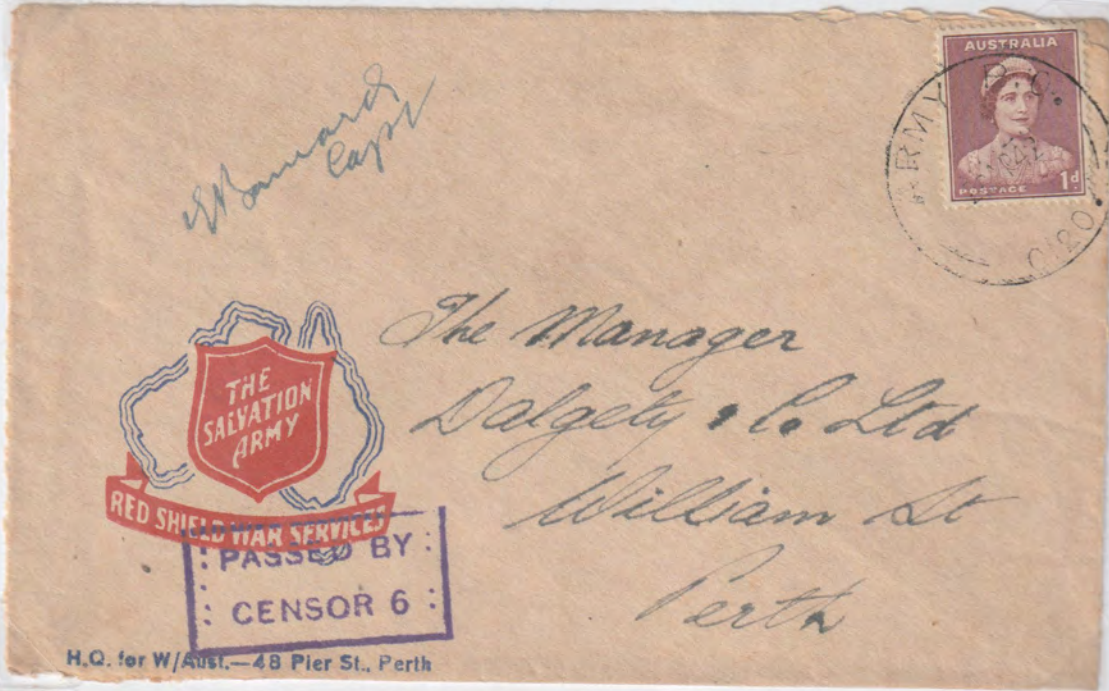 AUSTRALIA
POSTAGE 1d
ARMY P.O.
0120
Capt
The Manager
Dalgety & Co Ltd
William St
Perth
THE
SALVATION
ARMY
RED SHIELD WAR SERVICES
PASSED BY
CENSOR 6
H.Q. for W/Aust.—48 Pier St., Perth